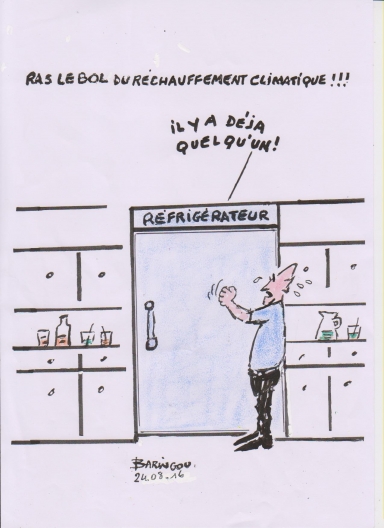 RAS LE BOL DU RÉCHAUFFEMENT CLIMATIQUE !!!
IL Y A DÉJA
QUELQU'UN !
RÉFRIGÉRATEUR
BARINGOU.
24.08.16